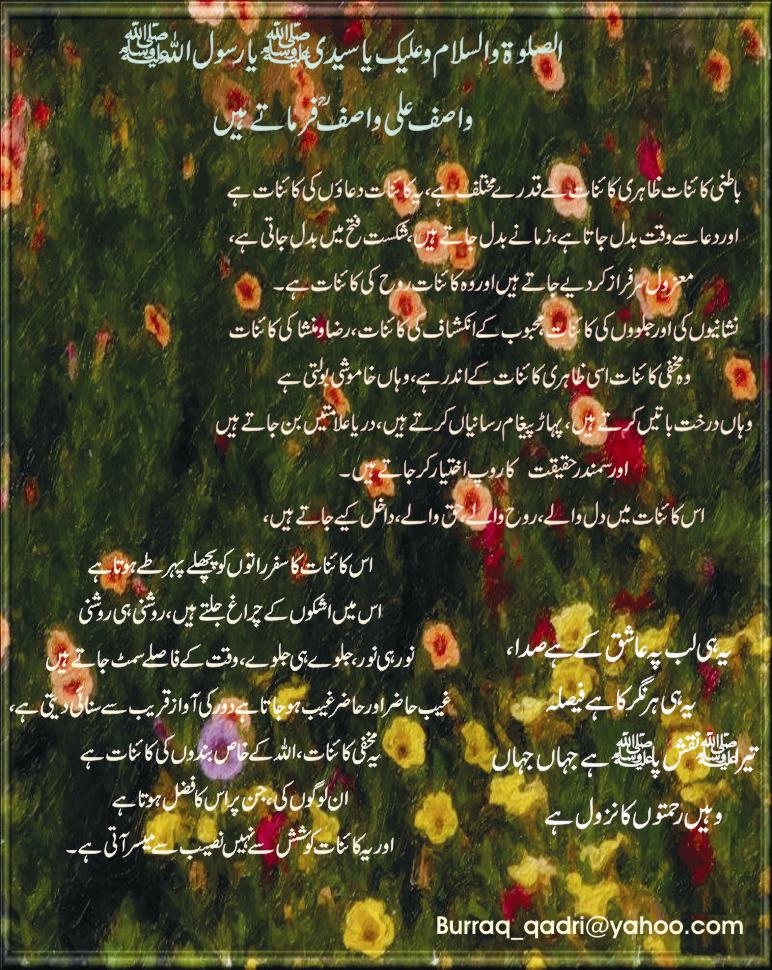 الصلوۃ والسلام وعلیک یا سیدی ﷺ یا رسول اللہ ﷺ
واصف علی واصفؒ فرماتے ہیں
باطنی کائنات ظاہری کائنات سے قدرے مختلف ہے، یہ کائنات دعاؤں کی کائنات ہے
اور دعا سے وقت بدل جاتا ہے، زمانے بدل جاتے ہیں، شکست فتح میں بدل جاتی ہے،
معزول سرفراز کر دیے جاتے ہیں اور وہ کائنات روح کی کائنات ہے۔
نشانیوں کی اور جلووں کی کائنات، محبوب کے انکشاف کی کائنات، رضا و منشا کی کائنات
وہ مخفی کائنات اسی ظاہری کائنات کے اندر ہے، وہاں خاموشی بولتی ہے
وہاں درخت باتیں کرتے ہیں، پہاڑ پیغام رسانیاں کرتے ہیں، دریا علامتیں بن جاتے ہیں
اور سمندر حقیقت کا روپ اختیار کر جاتے ہیں۔
اس کائنات میں دل والے، روح والے، حق والے، داخل کیے جاتے ہیں،
اس کائنات کا سفر راتوں کو پچھلے پہر طے ہوتا ہے
اس میں اشکوں کے چراغ جلتے ہیں، روشنی ہی روشنی
نور ہی نور، جلوے ہی جلوے، وقت کے فاصلے سمٹ جاتے ہیں
غیب حاضر اور حاضر غیب ہو جاتا ہے دور کی آواز قریب سے سنائی دیتی ہے،
یہ مخفی کائنات، اللہ کے خاص بندوں کی کائنات ہے
ان لوگوں کی، جن پر اس کا فضل ہوتا ہے
اور یہ کائنات کوشش سے نہیں نصیب سے میسر آتی ہے۔
یہ ہی لب پہ عاشق کے ہے صدا،
یہ ہی ہر نگر کا ہے فیصلہ
تیرا ﷺ نقش پا ﷺ ہے جہاں جہاں
وہیں رحمتوں کا نزول ہے
Burraq_qadri@yahoo.com